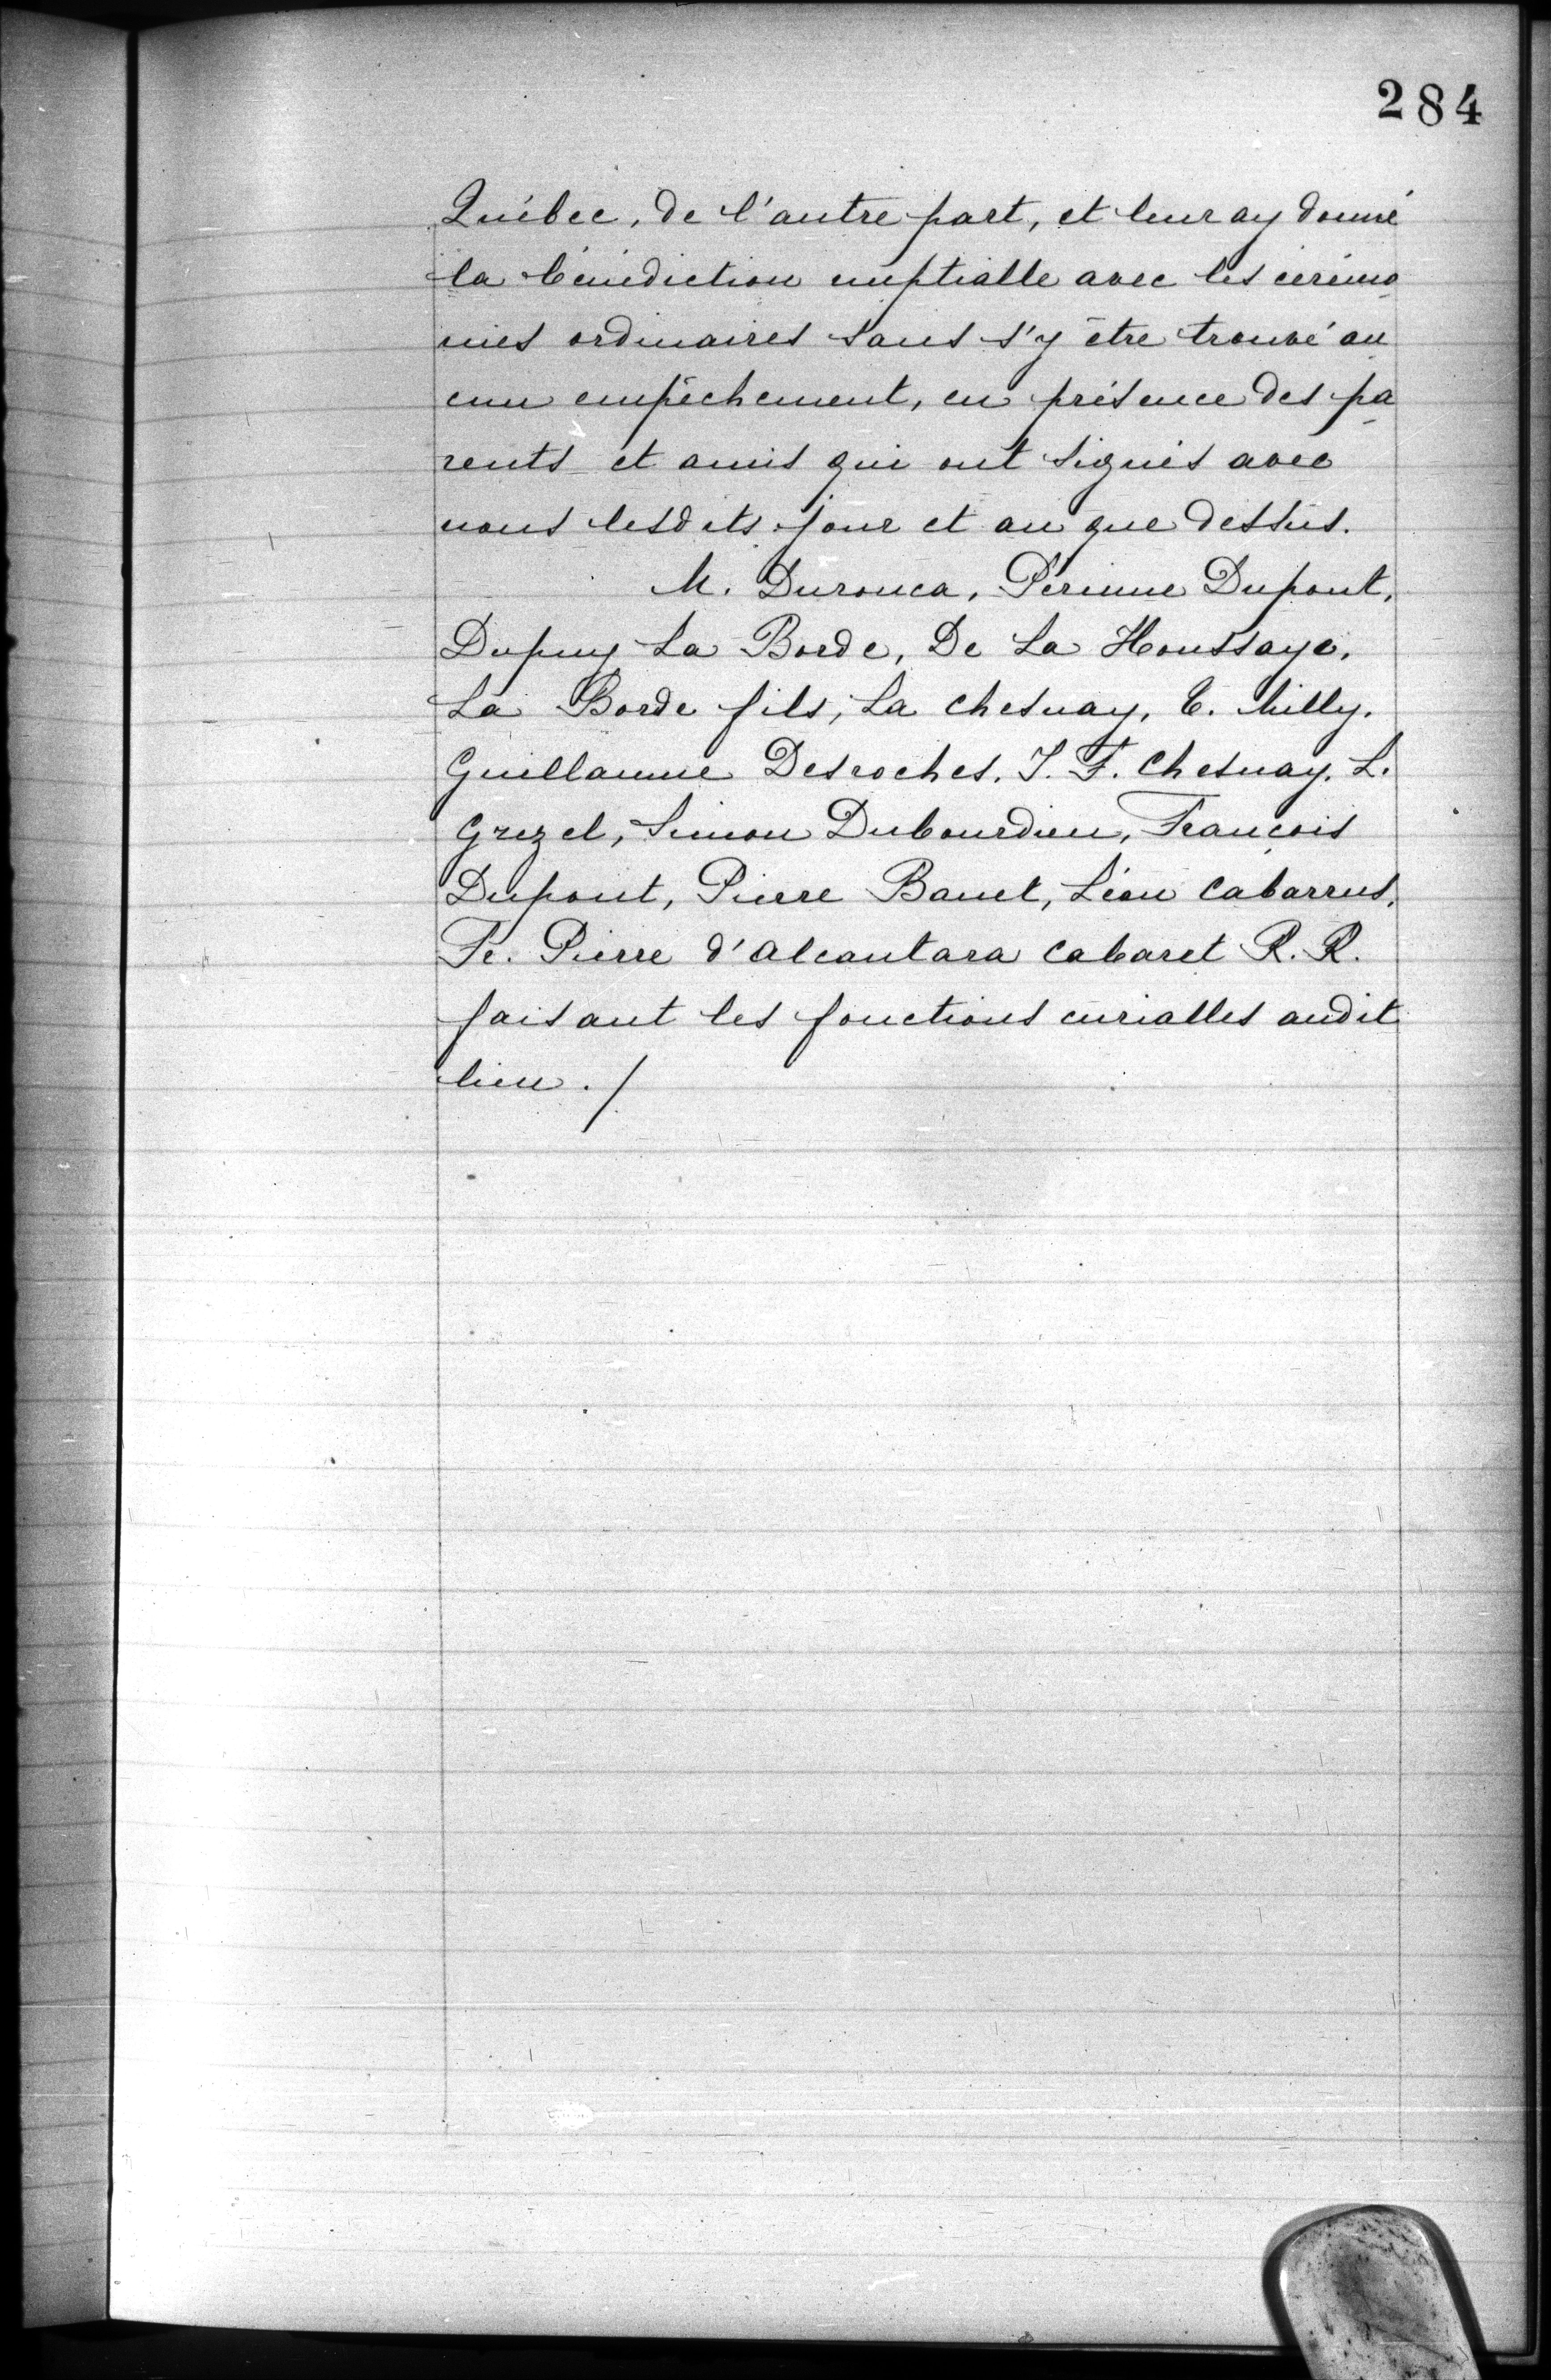 284
Québec, de l'autre part, et leur ay donné
la bénédiction nuptialle avec les cérémo
nies ordinaires sans s'y être trouvé au
cun empêchement, en présence des pa
rents et amis qui ont signés avec
nous lesdits jour et an que dessus.
M. Duronca, Périnne Dupont,
Dupuy La Borde, De La Houssaye,
La Borde fils, La Chesnay, E. Milly.
Guillaume Desroches. J. F. Chesnay. L.
Grezel, Simon Dubourdieu, François
Dupont, Pierre Banet, Léon Cabarrus,
Fr. Pierre d'Alcantara Cabaret R. R.
faisant les fonctions curialles audit
lieu ./